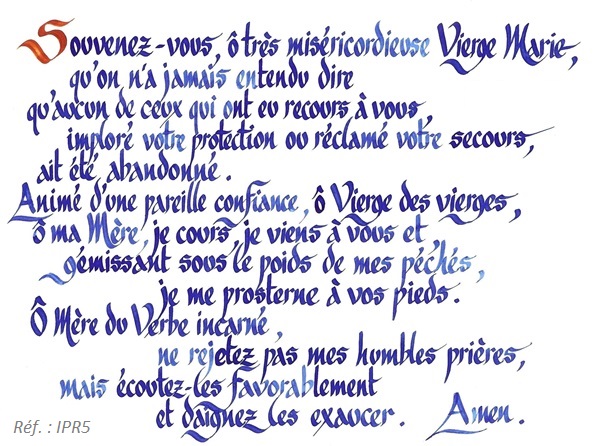 Souvenez-vous, ô très miséricordieuse Vierge Marie,
qu'on n'a jamais entendu dire
qu'aucun de ceux qui ont eu recours à vous,
imploré votre protection ou réclamé votre secours,
ait été abandonné.
Animé d'une pareille confiance, ô Vierge des vierges,
ô ma Mère, je cours, je viens à vous et
gémissant sous le poids de mes péchés,
je me prosterne à vos pieds.
Ô Mère du Verbe incarné,
ne rejetez pas mes humbles prières,
mais écoutez-les favorablement
et daignez les exaucer. Amen.
Réf. : IPR5